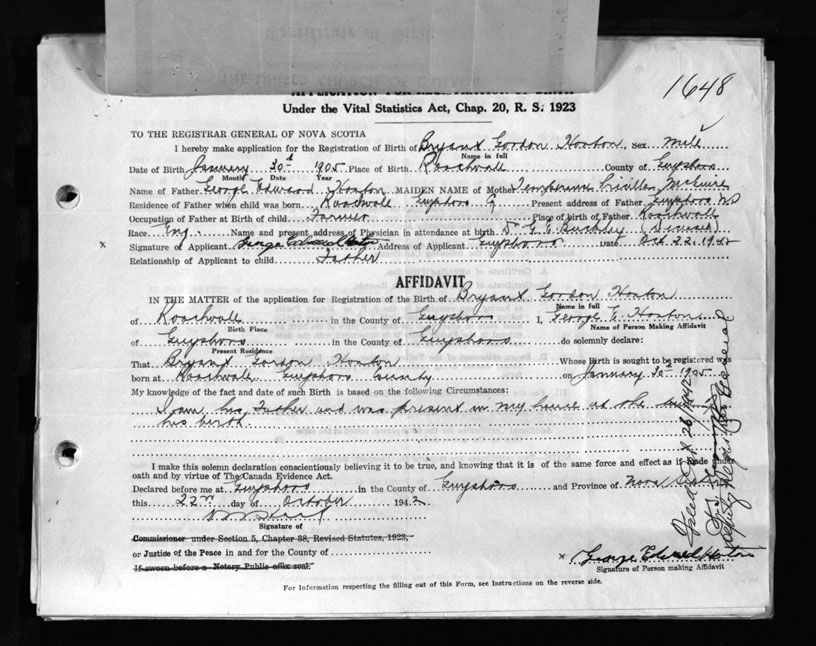 1648
APPLICATION FOR REGISTRATION OF BIRTH
Under the Vital Statistics Act, Chap. 20, R. S. 1923
TO THE REGISTRAR GENERAL OF NOVA SCOTIA
I hereby make application for the Registration of Birth of Bryant Gordon Horton, Sex Male
Name in full
Date of Birth January 30th 1905 Place of Birth Roachvale County of Guysboro
Month Date Year
Name of Father George Edward Horton MAIDEN NAME of Mother Temperance McGuire
Residence of Father when child was born Roachvale Guysboro Co Present address of Father Guysboro NS
Occupation of Father at Birth of child Farmer Place of birth of Father Roachvale
Race Eng. Name and present address of Physician in attendance at birth Dr G. E. Buckley (Deceased)
x Signature of Applicant George Edward Horton Address of Applicant Guysboro Date Oct 22, 1942
Relationship of Applicant to child Father
AFFIDAVIT
IN THE MATTER of the application for Registration of the Birth of Bryant Gordon Horton
Name in full
of Roachvale in the County of Guysboro I, George E Horton
Birth Place Name of Person Making Affidavit
of Guysboro in the County of Guysboro do solemnly declare:
Present Residence
That Bryant Gordon Horton Whose Birth is sought to be registered was
born at Roachvale, Guysboro County on January 30th 1905
My knowledge of the fact and date of such Birth is based on the following Circumstances:
I am his Father and was present in my house at the time
his birth
I make this solemn declaration conscientiously believing it to be true, and knowing that it is of the same force and effect as if made under
oath and by virtue of The Canada Evidence Act.
Declared before me at Guysboro in the County of Guysboro and Province of Nova Scotia
this 22nd day of October 1942
Signature of
Commissioner under Section 5, Chapter 38, Revised Statutes, 1923,
or Justice of the Peace in and for the County of
If sworn before a Notary Public affix seal."
x George Edward Horton
Signature of Person making Affidavit
For Information respecting the filling out of this Form, see Instructions on the reverse side.
Filed Oct 26 1942
Deputy Registrar General